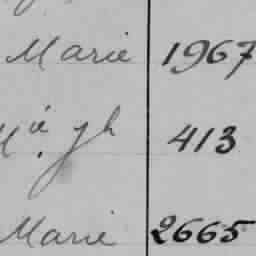 Marie 1967
Mie Jh 413
Marie 2665